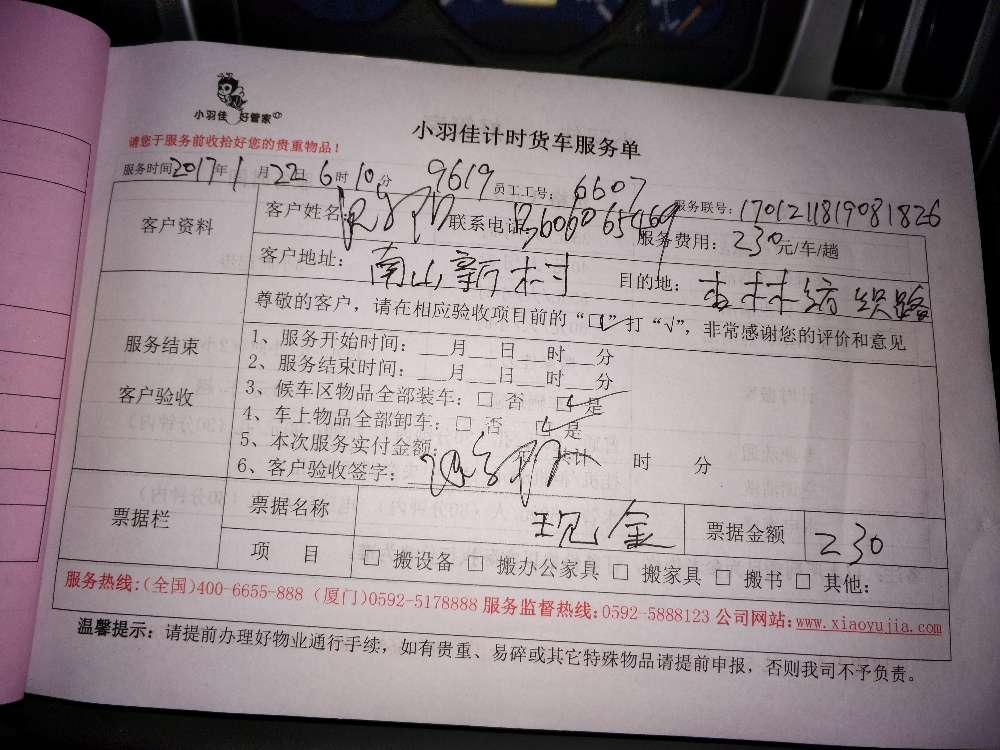 小羽佳 好管家
小羽佳计时货车服务单
请您于服务前收拾好您的贵重物品！
服务时间2017年1月22日6时10分 9619 员工工号：6607 服务联号：1701211819081826
客户资料 客户姓名： 联系电话： 服务费用：230元/车/趟
客户地址：南山新村 目的地：
服务结束 客户验收
尊敬的客户，请在相应验收项目前的“□”打“√”，非常感谢您的评价和意见
1、服务开始时间：___月___日___时___分
2、服务结束时间：___月___日___时___分
3、候车区物品全部装车：□ 否 □ 是
4、车上物品全部卸车：□ 否 □ 是
5、本次服务实付金额： 元 共计 时 分
6、客户验收签字：
票据栏 票据名称 现金 票据金额 230
项 目 □ 搬设备 □ 搬办公家具 □ 搬家具 □ 搬书 □ 其他：
服务热线：(全国)400-6655-888 (厦门)0592-5178888 服务监督热线：0592-5888123 公司网站：www.xiaoyujia.com
温馨提示：请提前办理好物业通行手续，如有贵重、易碎或其它特殊物品请提前申报，否则我司不予负责。